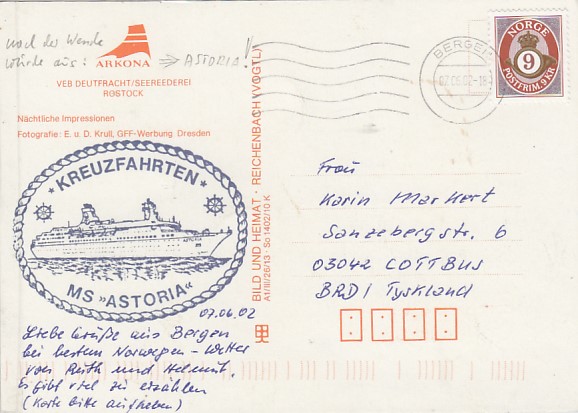 nach der Wende
wurde aus: => ASTORIA!
ARKONA
VEB DEUTFRACHT/SEEREEDEREI
ROSTOCK
Nächtliche Impressionen
Fotografie: E. u. D. Krull, GFF-Werbung Dresden
*KREUZFAHRTEN*
ASTORIA
MS »ASTORIA«
07.06.02
Liebe Grüße aus Bergen
bei bestem Norwegen-Wetter
von Ruth und Helmut.
Es gibt viel zu erzählen
(Karte bitte aufheben)
BILD UND HEIMAT · REICHENBACH (VOGTL)
A1/III/26/13 So 1402/10 K
BERGEN
07.06.02-18
NORGE
9
POSTFRIM. 9 KR
Frau
Karin Markert
Sanzebergstr. 6
03042 COTTBUS
BRD / Tyskland